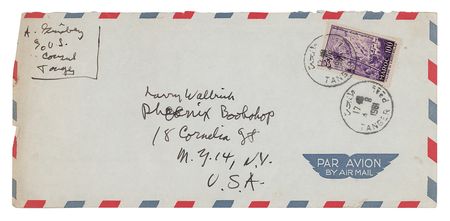 A. Ginsberg
% U.S.
Consul
MAROC
TANGER
TANGER
Larry Wallrich
Phoenix Bookshop
18 Cornelia St
N.Y. 14, N.Y.
U.S.A.
PAR AVION
BY AIR MAIL